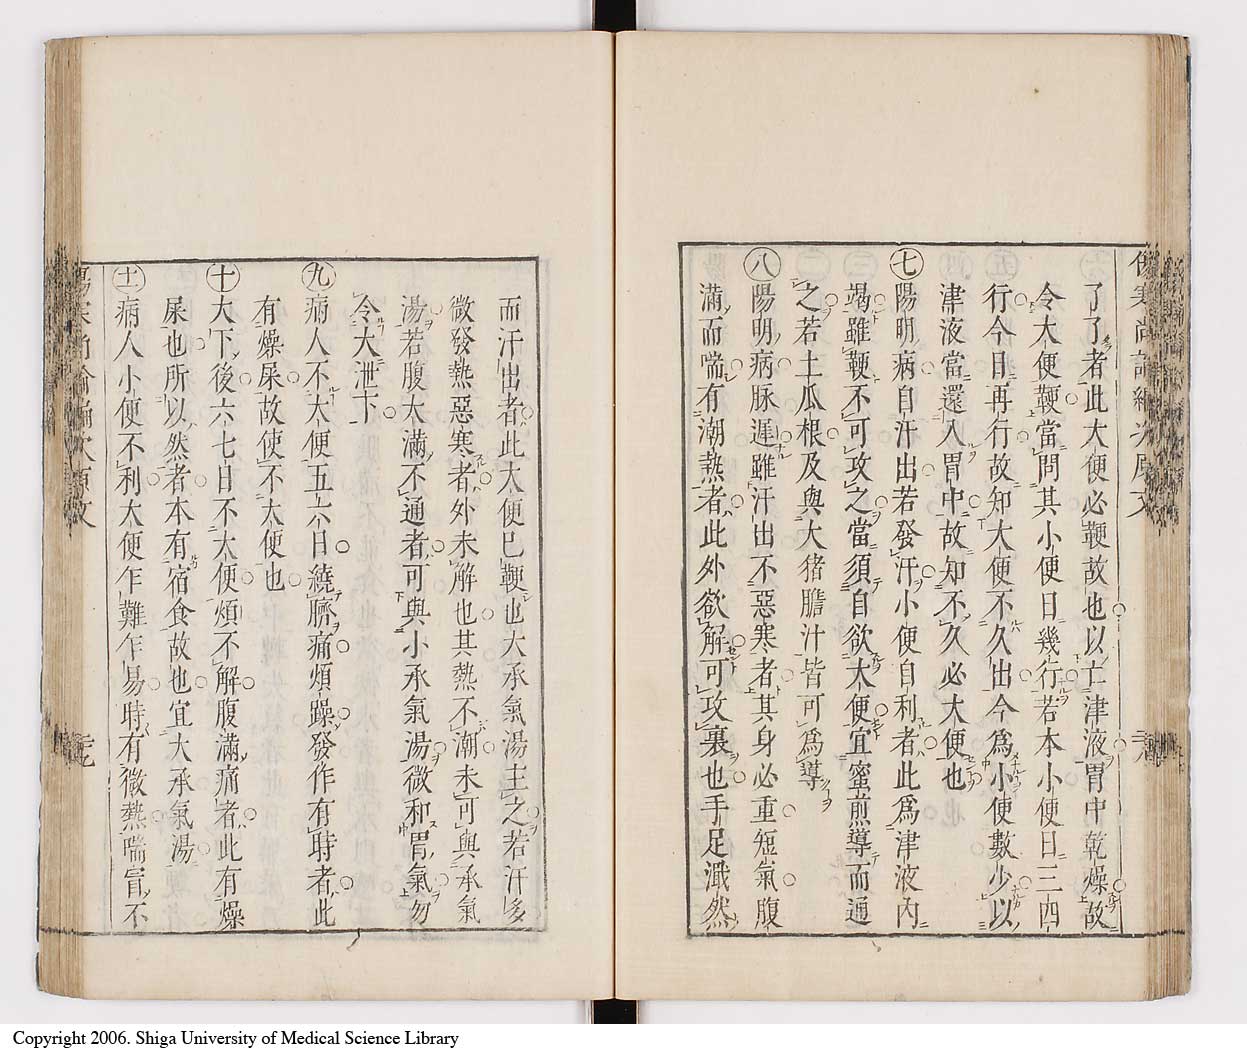 了了者此大便必鞕故也以亡津液胃中乾燥故
令大便鞕當問其小便日幾行若本小便日三四
行今日再行故知大便不久出今爲小便數少以
津液當還入胃中故知不久必大便也
七陽明病自汗出若發汗小便自利者此爲津液內
竭雖鞕不可攻之當須自欲大便宜蜜煎導而通
之若土瓜根及與大猪膽汁皆可爲導
八陽明病脉遲雖汗出不惡寒者其身必重短氣腹
滿而喘有潮熱者此外欲解可攻裏也手足濈然
而汗出者此大便已鞕也大承氣湯主之若汗多
微發熱惡寒者外未解也其熱不潮未可與承氣
湯若腹大滿不通者可與小承氣湯微和胃氣勿
令大泄下
九病人不大便五六日繞臍痛煩躁發作有時者此
有燥屎故使不大便也
十大下後六七日不大便煩不解腹滿痛者此有燥
屎也所以然者本有宿食故也宜大承氣湯
十一病人小便不利大便乍難乍易時有微熱喘冒不
Copyright 2006. Shiga University of Medical Science Library